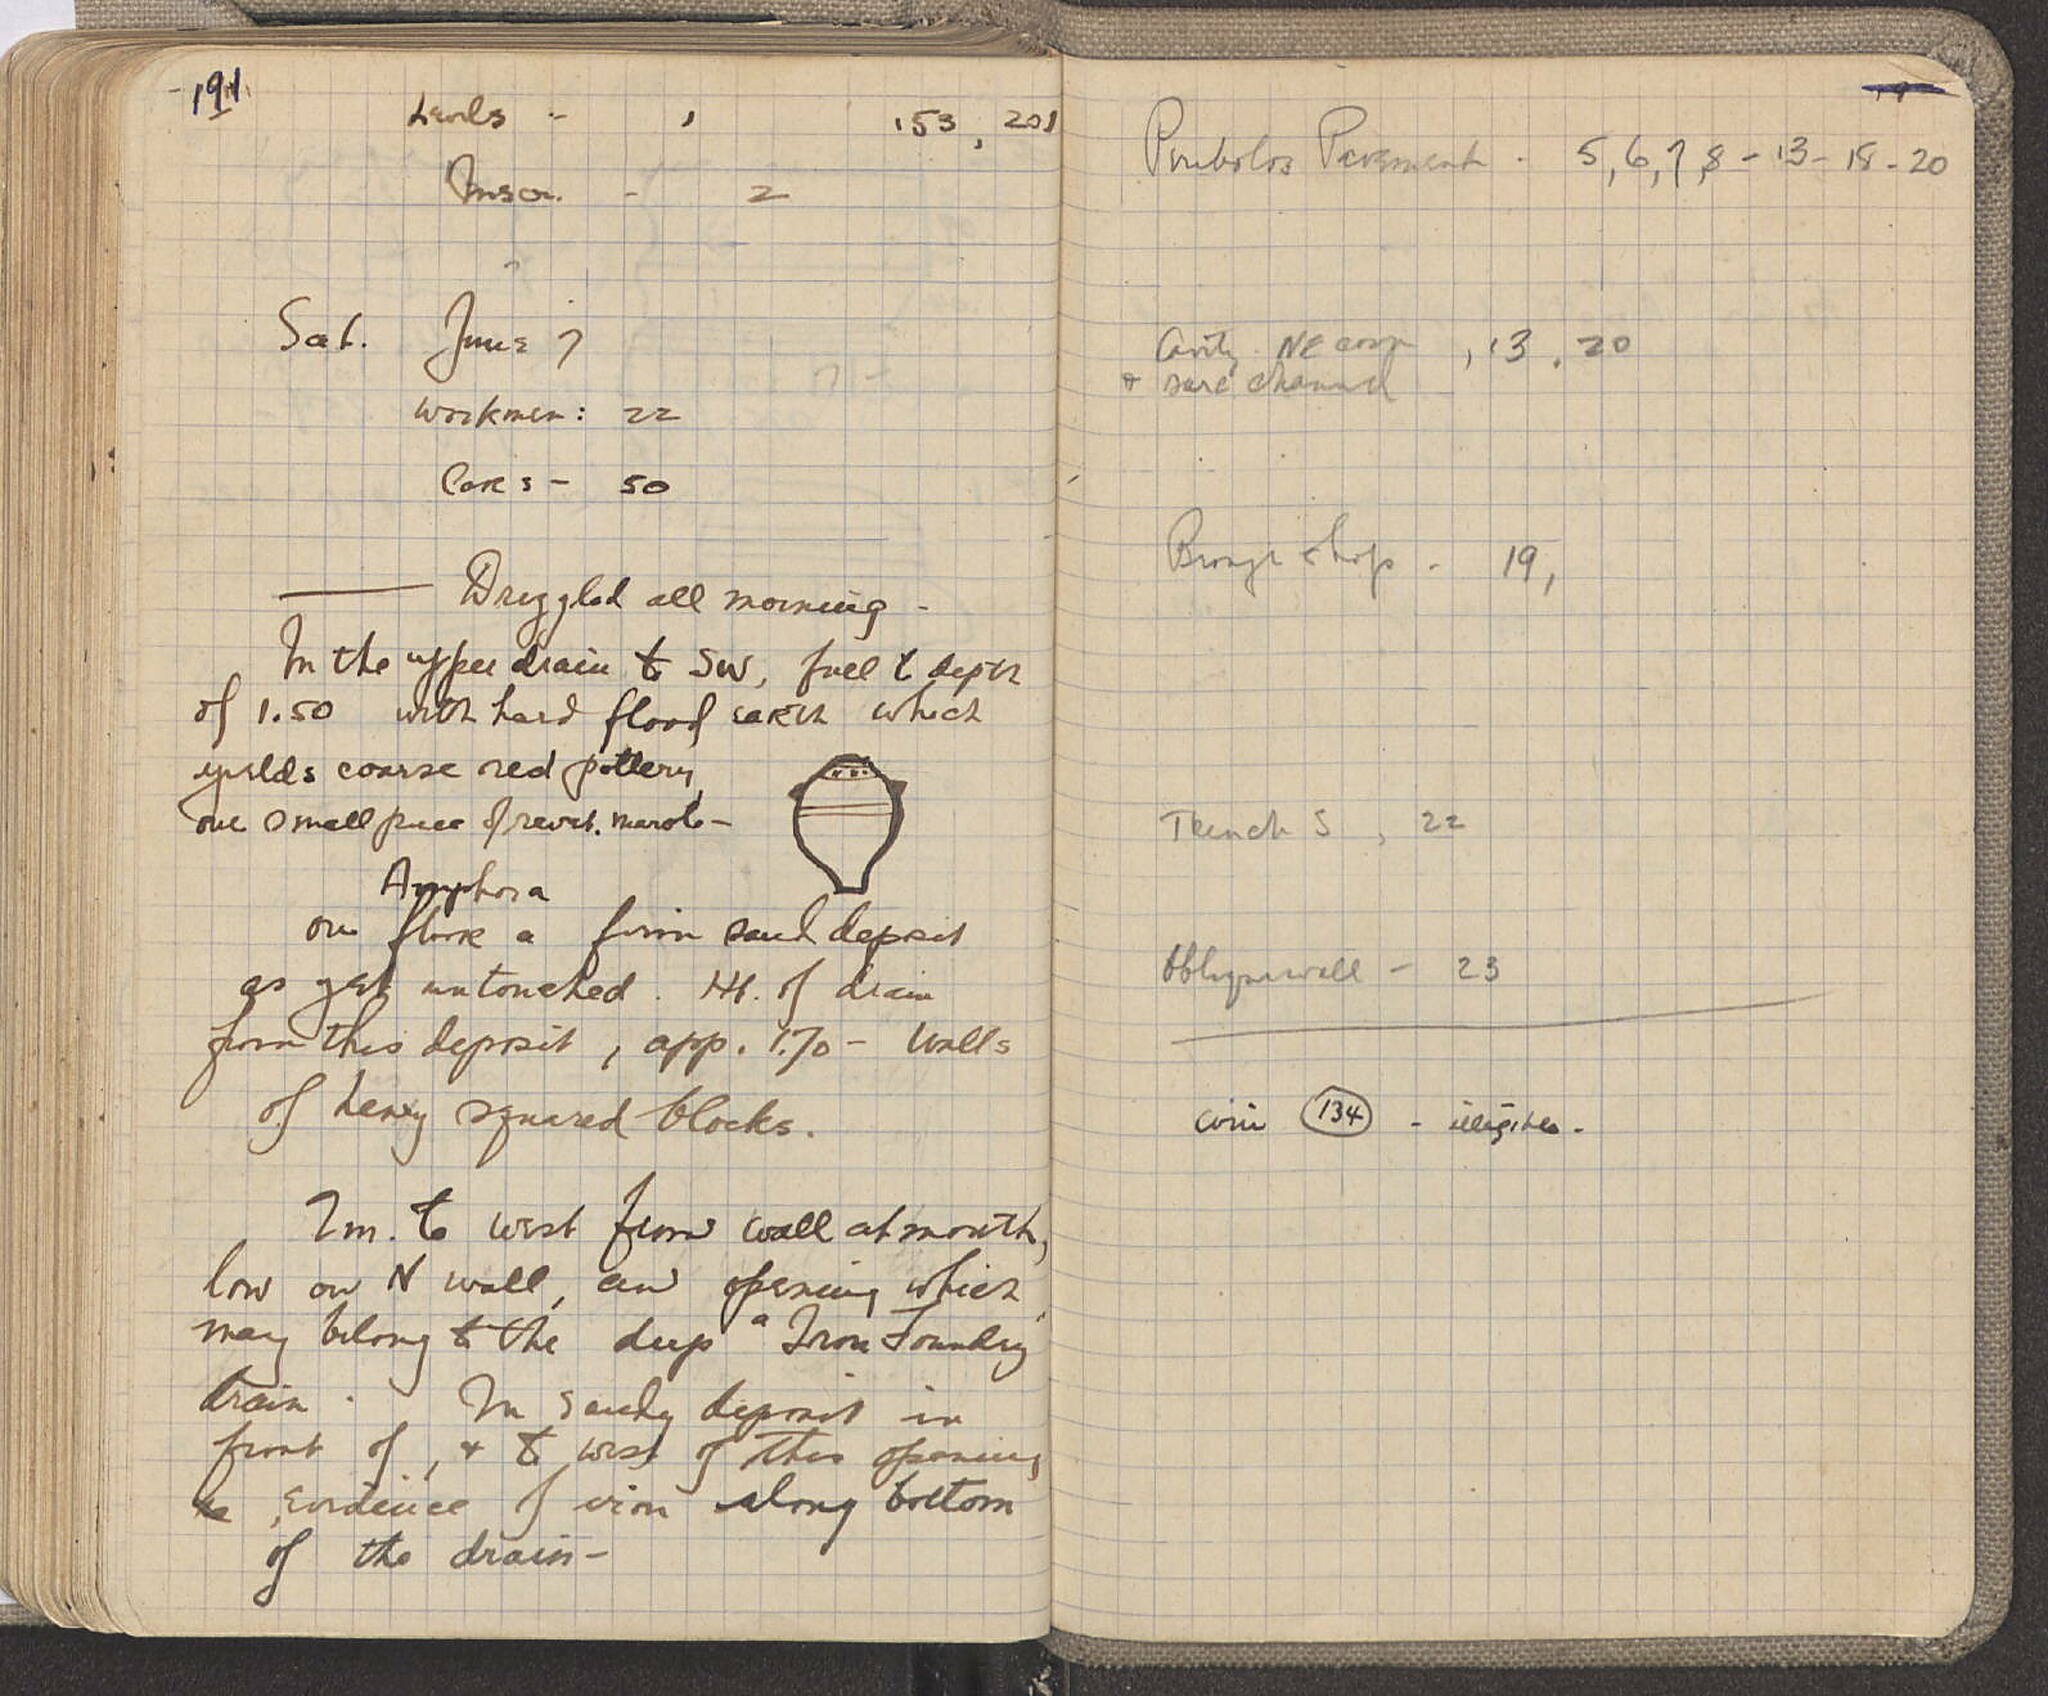 191
Levels - , 153, 201
Inscr. - 2
Sat. June 7
Workmen: 22
Cars - 50
Drizzled all morning -
In the upper drain to SW, full to depth
of 1.50 with hard flood earth which
yields coarse red pottery,
one small piece of revet. marble -
Amphora
on floor a firm sand deposit
as yet untouched. Ht. of drain
from this deposit, app. 1.70 - Walls
of heavy squared blocks.
7m. to west from wall at mouth,
low on N wall, an opening which
may belong to the deep "Iron Foundry
drain. In sandy deposit in
front of, & to west of this opening
evidence of iron along bottom
of the drain -
Peribolos Pavement - 5, 6, 7, 8 - 13 - 18 - 20
Cavity NE corn , 13 . 20
& channel
Bronze shop - 19,
Trench S , 22
Oblique wall - 23
coin 134 - illegible -